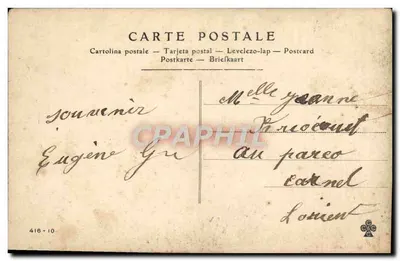 CARTE POSTALE
Cartolina postale — Tarjeta postal — Levelezo-lap — Postcard
Postkarte — Briefkaart
souvenir
Eugène
Melle Jeanne
au parco
carnel
Lorient
CPAPHIL
416-10